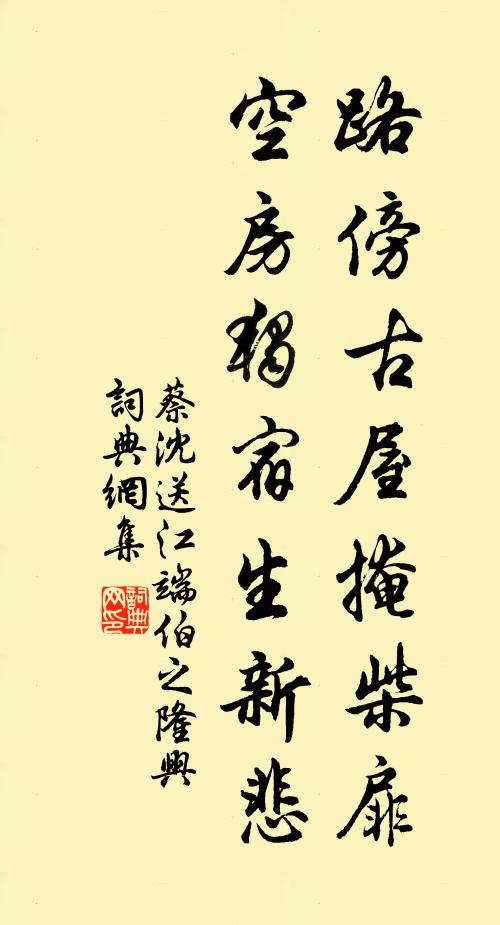 路傍古屋掩柴扉
空房獨宿生新悲
蔡沈送江端伯之隆興
詞典網集
詞典网印